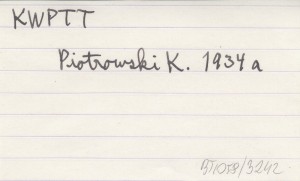 KWPTT
Piotrowski K. 1934a
BT1058/3242